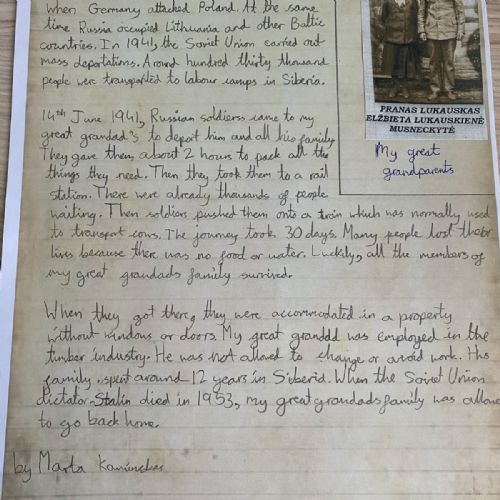 when Germany attacked Poland. At the same
time Russia occupied Lithuania and other Baltic
countries. In 1941, the Soviet Union carried out
mass deportations. Around hundred thirty thousand
people were transported to labour camps in Siberia.
14th June 1941, Russian soldiers came to my
great grandad's to deport him and all his family.
They gave them about 2 hours to pack all the
things they need. Then they took them to a rail
station. There were already thousands of people
waiting. Then soldiers pushed them onto a train which was normally used
to transport cows. The journey took 30 days. Many people lost their
lives because there was no food or water. Luckily, all the members of
my great grandads family survived.
PRANAS LUKAUSKAS
ELŽBIETA LUKAUSKIENĖ
MUSNECKYTĖ
My great
grandparents
When they got there, they were accommodated in a property
without windows or doors. My great grandad was employed in the
timber industry. He was not allowed to change or avoid work. His
family spent around 12 years in Siberia. When the Soviet Union
dictator Stalin died in 1953, my great grandads family was allowe
to go back home.
by Marta